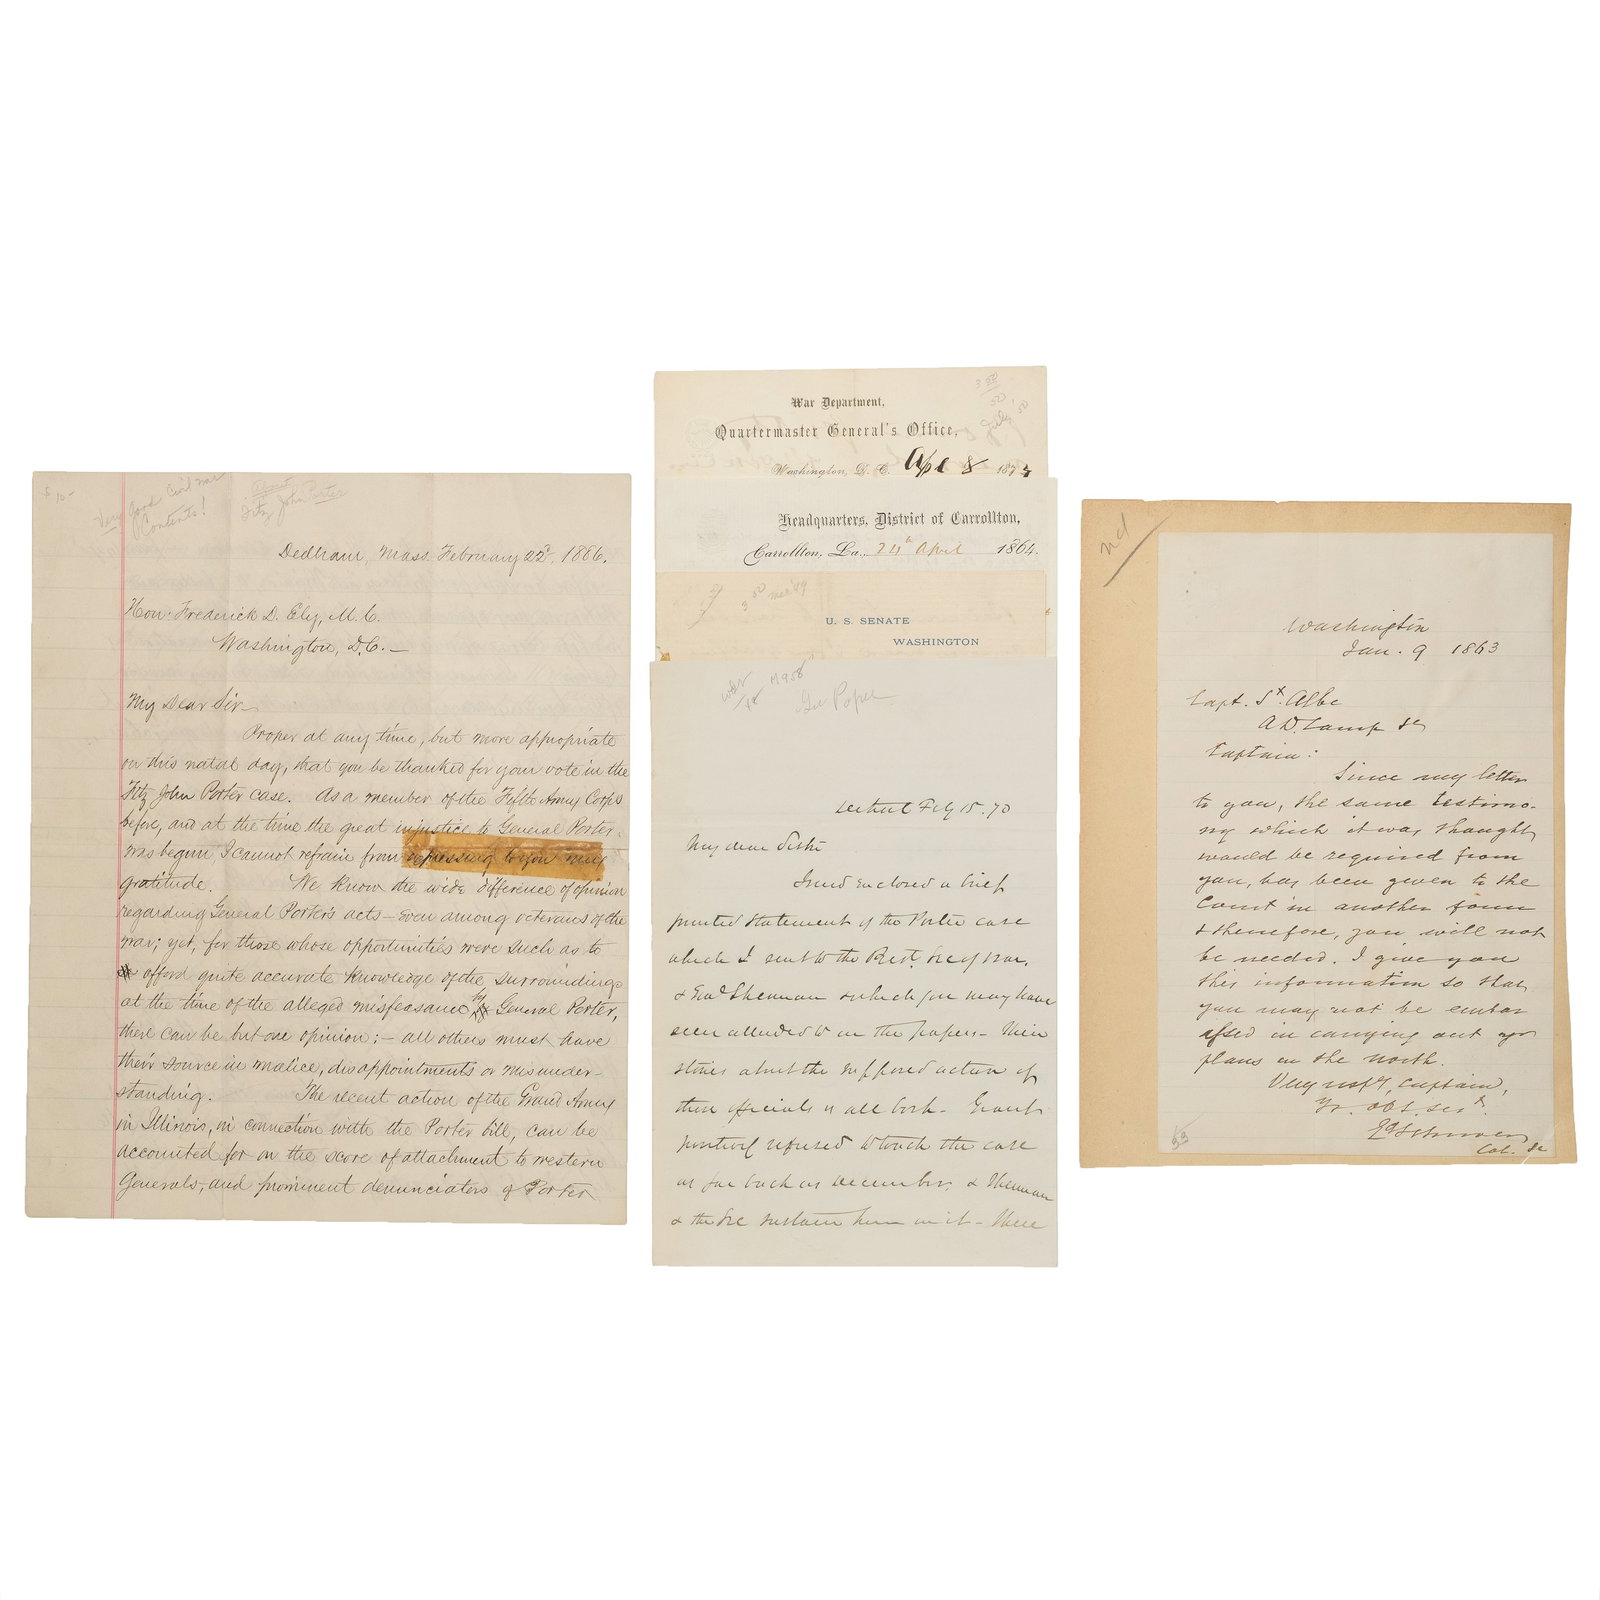 $10-
Very Good Civil War
Contents!
Fitz John Porter
Dedham, Mass. February 22d, 1886.
Hon. Frederick D. Ely, M.C.
Washington, D.C.—
My Dear Sir—
Proper at any time, but more appropriate
on this natal day, that you be thanked for your vote in the
Fitz John Porter case. As a member of the Fifth Army Corps
before, and at the time the great injustice to General Porter
was begun, I cannot refrain from expressing to you my
gratitude. We know the wide difference of opinion
regarding General Porter's acts—even among veterans of the
war; yet, for those whose opportunities were such as to
afford quite accurate knowledge of the surroundings
at the time of the alleged misfeasance by General Porter,
there can be but one opinion;—all others must have
their source in malice, disappointments or misunder-
standing. The recent action of the Grand Army
in Illinois, in connection with the Porter bill, can be
accounted for on the score of attachment to western
Generals, and prominent denunciators of Porter
War Department,
Quartermaster General's Office,
Washington, D. C. Apl 8 187
Headquarters, District of Carrollton,
Carrollton, La., 24th April 1864.
U. S. SENATE
WASHINGTON
Gen Pope
Detroit Feby 15. 70
My dear
I send enclosed a brief
printed statement of the Porter case
which I sent to the Prest, Secy War,
& Genl Sherman & which you may have
seen alluded to in the papers— Their
stories about the supposed action of
these officials is all bosh— Grant
positively refused to touch the case
as far back as December, & Sherman
& the Sec sustain him in it— There
nd
Washington
Jan. 9 1863
Capt. St. Albe
A.D. Camp &c
Captain:
Since my letter
to you, the same testimo-
ny which it was thought
would be required from
you, has been given to the
Court in another form
& therefore, you will not
be needed. I give you
this information so that
you may not be embar
assed in carrying out yr
plans in the north.
Very respy, Captain,
Yr. obt. sert.
Schriver
Col. &c
53